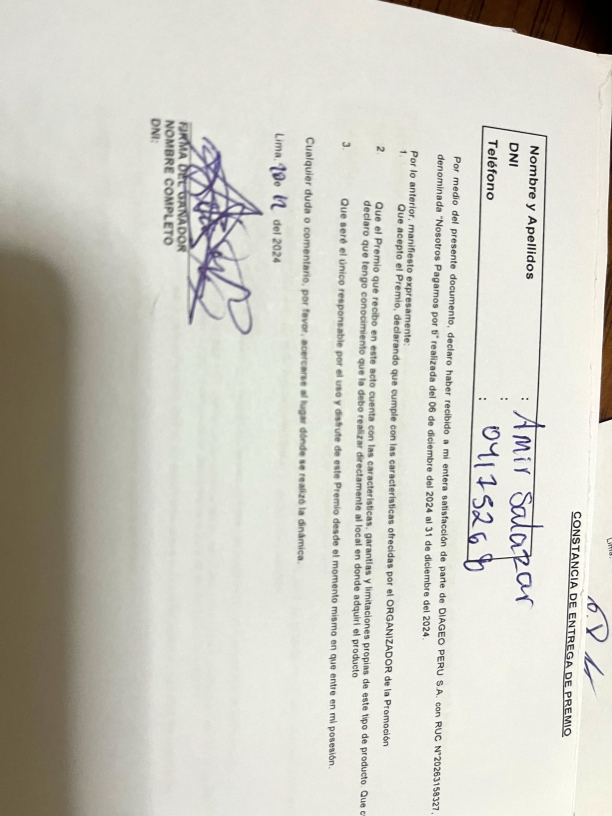 CONSTANCIA DE ENTREGA DE PREMIO
Nombre y Apellidos : Amir Salazar
DNI : 04175268
Teléfono :
Por medio del presente documento, declaro haber recibido a mi entera satisfacción de parte de DIAGEO PERU S.A. con RUC N°20263158327,
denominada "Nosotros Pagamos por ti" realizada del 06 de diciembre del 2024 al 31 de diciembre del 2024.
Por lo anterior, manifiesto expresamente:
1. Que acepto el Premio, declarando que cumple con las características ofrecidas por el ORGANIZADOR de la Promoción
2. Que el Premio que recibo en este acto cuenta con las características, garantías y limitaciones propias de este tipo de producto. Que
declaro que tengo conocimiento que la debo realizar directamente al local en donde adquirí el producto
3. Que seré el único responsable por el uso y disfrute de este Premio desde el momento mismo en que entre en mi posesión.
Cualquier duda o comentario, por favor, acercarse al lugar donde se realizó la dinámica.
Lima, de del 2024
FIRMA DEL GANADOR
NOMBRE COMPLETO
DNI: